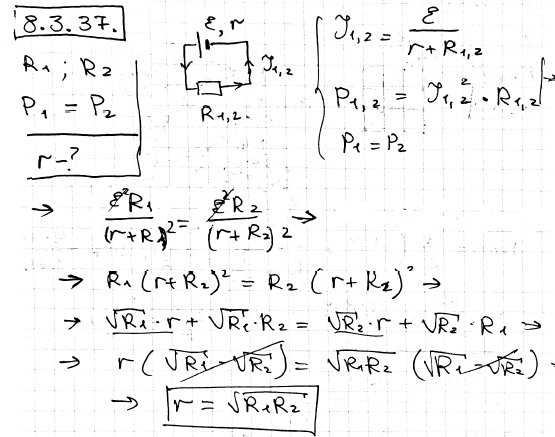 8.3.37.
R₁ ; R₂
P₁ = P₂
r - ?
ε, r
J₁,₂
R₁,₂.
J₁,₂ = ε / (r + R₁,₂)
P₁,₂ = J₁,₂² · R₁,₂ →
P₁ = P₂
→ ε²R₁ / (r+R₁)² = ε²R₂ / (r+R₂)² →
→ R₁ (r+R₂)² = R₂ (r+R₂)² →
→ √R₁ · r + √R₁ · R₂ = √R₂ · r + √R₂ · R₁ →
→ r (√R₁ - √R₂) = √R₁R₂ (√R₁ - √R₂) →
→ r = √R₁R₂